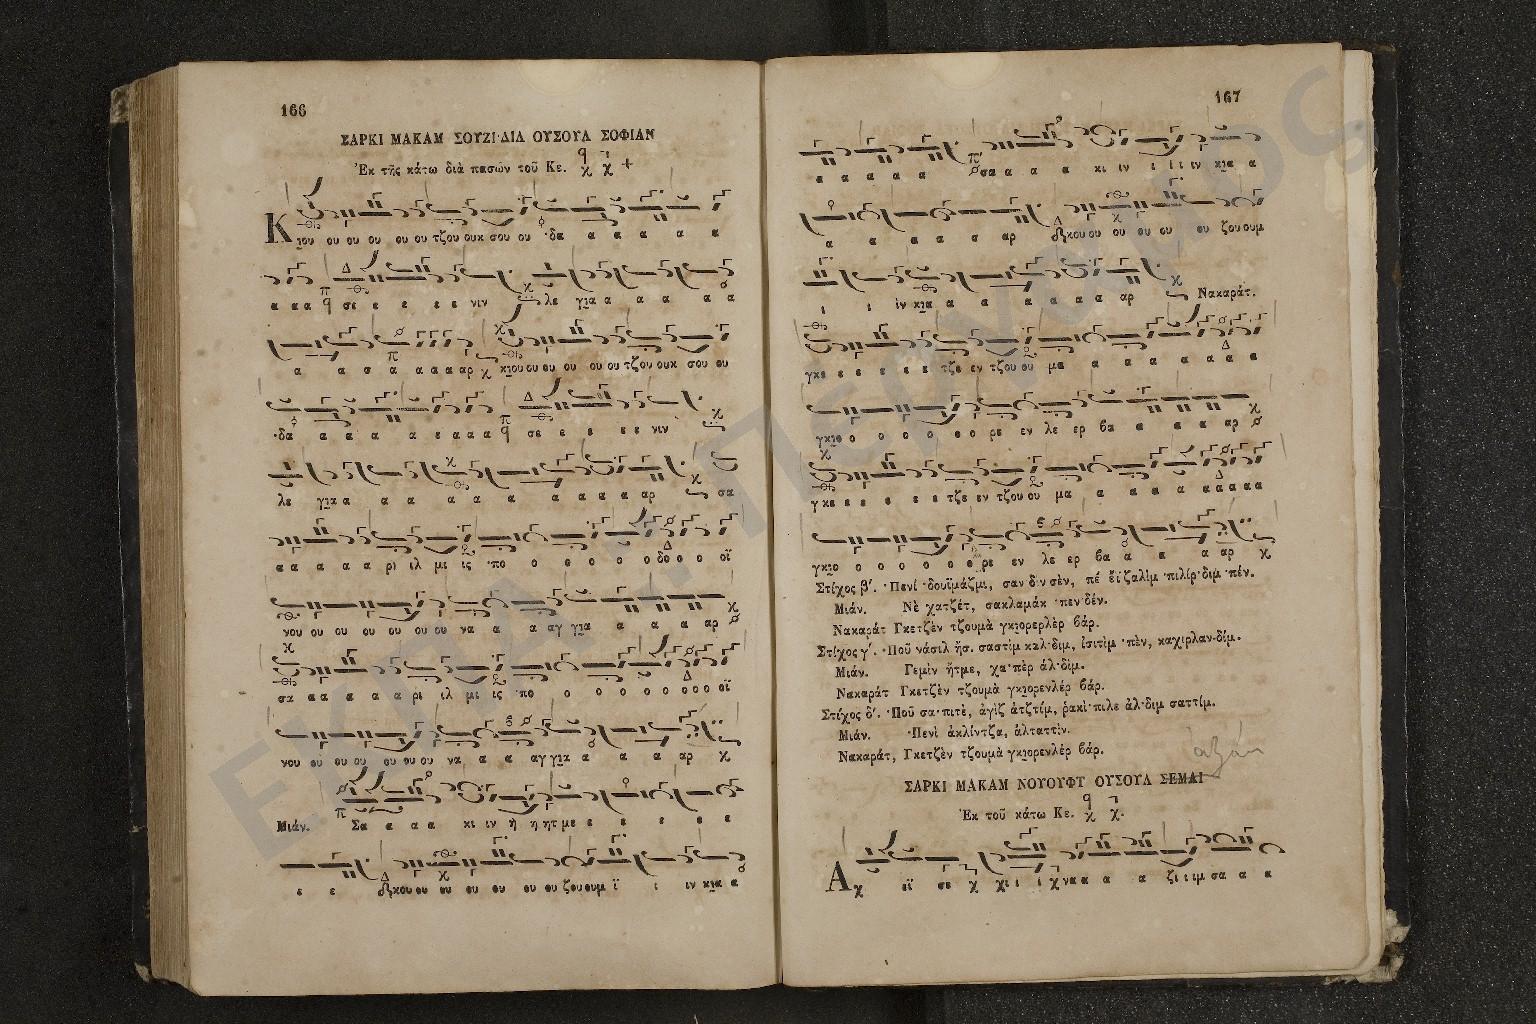 166
ΣΑΡΚΙ ΜΑΚΑΜ ΣΟΥΖΙ·ΔΙΛ ΟΥΣΟΥΛ ΣΟΦΙΑΝ
Ἐκ τῆς κάτω διὰ πασῶν τοῦ Κε.
Κιου ου ου ου ου ου τζου ουκ σου ου ·δα α α α α α
α α α σε ε ε ε ε νιν λε για α α α α α
α α σ α α α α αρ κιου ου ου ου ου ου τζου ουκ σου ου
·δα α α α α α α α α σε ε ε ε ε νιν
λε για α α α α α α α α α αρ σα
α α α α α ρι ιλ μι ις ·πο ο ο ο ο ο δο ο ο οϊ
νου ου ου ου ου ου ου να α αγ για α α α αρ
σα α α α α α ρι ιλ μι ις ·πο ο ο ο ο ο ο ο ο οϊ
νου ου ου ου ου ου ου να α α αγ για α α α αρ
Μιάν. Σα α α α κι ιν ἡ η ητ με ε ε ε ε ε
ε ε κου ου ου ου ου ου ου ζου ουμ ϊ ι ιν κια α
167
α α α α α σα α α α κι ιν ι ι ι ιν κια α
α α α α σ αρ κου ου ου ου ου ου ζου ουμ
ι ι ἰν κια α α α α α α αρ Νακαράτ.
γκε ε ε ε ε ε τζε εν τζου ου μα α α α α α α α
γκιο ο ο ο ο ο ο ρε εν λε ερ βα α α α αρ
γκε ε ε ε ε ε τζε εν τζου ου μα α α α α α α α α
γκιο ο ο ο ο ο ο ρε εν λε ερ βα α α α αρ
Στίχος β΄. ·Πενί ·δουϊμάζμι, σαν δὶν σὲν, πέ ἐΐ ζαλὶμ ·πιλίρ·διμ ·πέν.
Μιάν. Νὲ χατζέτ, σακλαμάκ ·πεν·δέν.
Νακαράτ Γκετζὲν τζουμὰ γκιορερλὲρ βάρ.
Στίχος γ΄. ·Ποῦ νάσιλ ἤσ. σαστὶμ καλ·διμ, ἰσιτὶμ ·πὲν, καχιρλαν·δίμ.
Μιάν. Γεμὶν ἤτμε, χα·πὲρ ἀλ·δὶμ.
Νακαράτ Γκετζὲν τζουμὰ γκιορενλέρ βάρ.
Στίχος δ΄. ·Ποῦ σα·πιτὲ, ἀγὶζ ἀτζτίμ, ῥακὶ·πιλε ἀλ·διμ σαττίμ.
Μιάν. ·Πενὶ ἀκλίντζα, ἀλταττὶν.
Νακαράτ, Γκετζὲν τζουμὰ γκιορενλέρ βάρ.
ΣΑΡΚΙ ΜΑΚΑΜ ΝΟΥΟΥΦΤ ΟΥΣΟΥΛ ΣΕΜΑΙ
Ἐκ τοῦ κάτω Κε.
Αχ εϊ σε χ χι ι ι χνα α α α α ζι ι ιμ σα α α